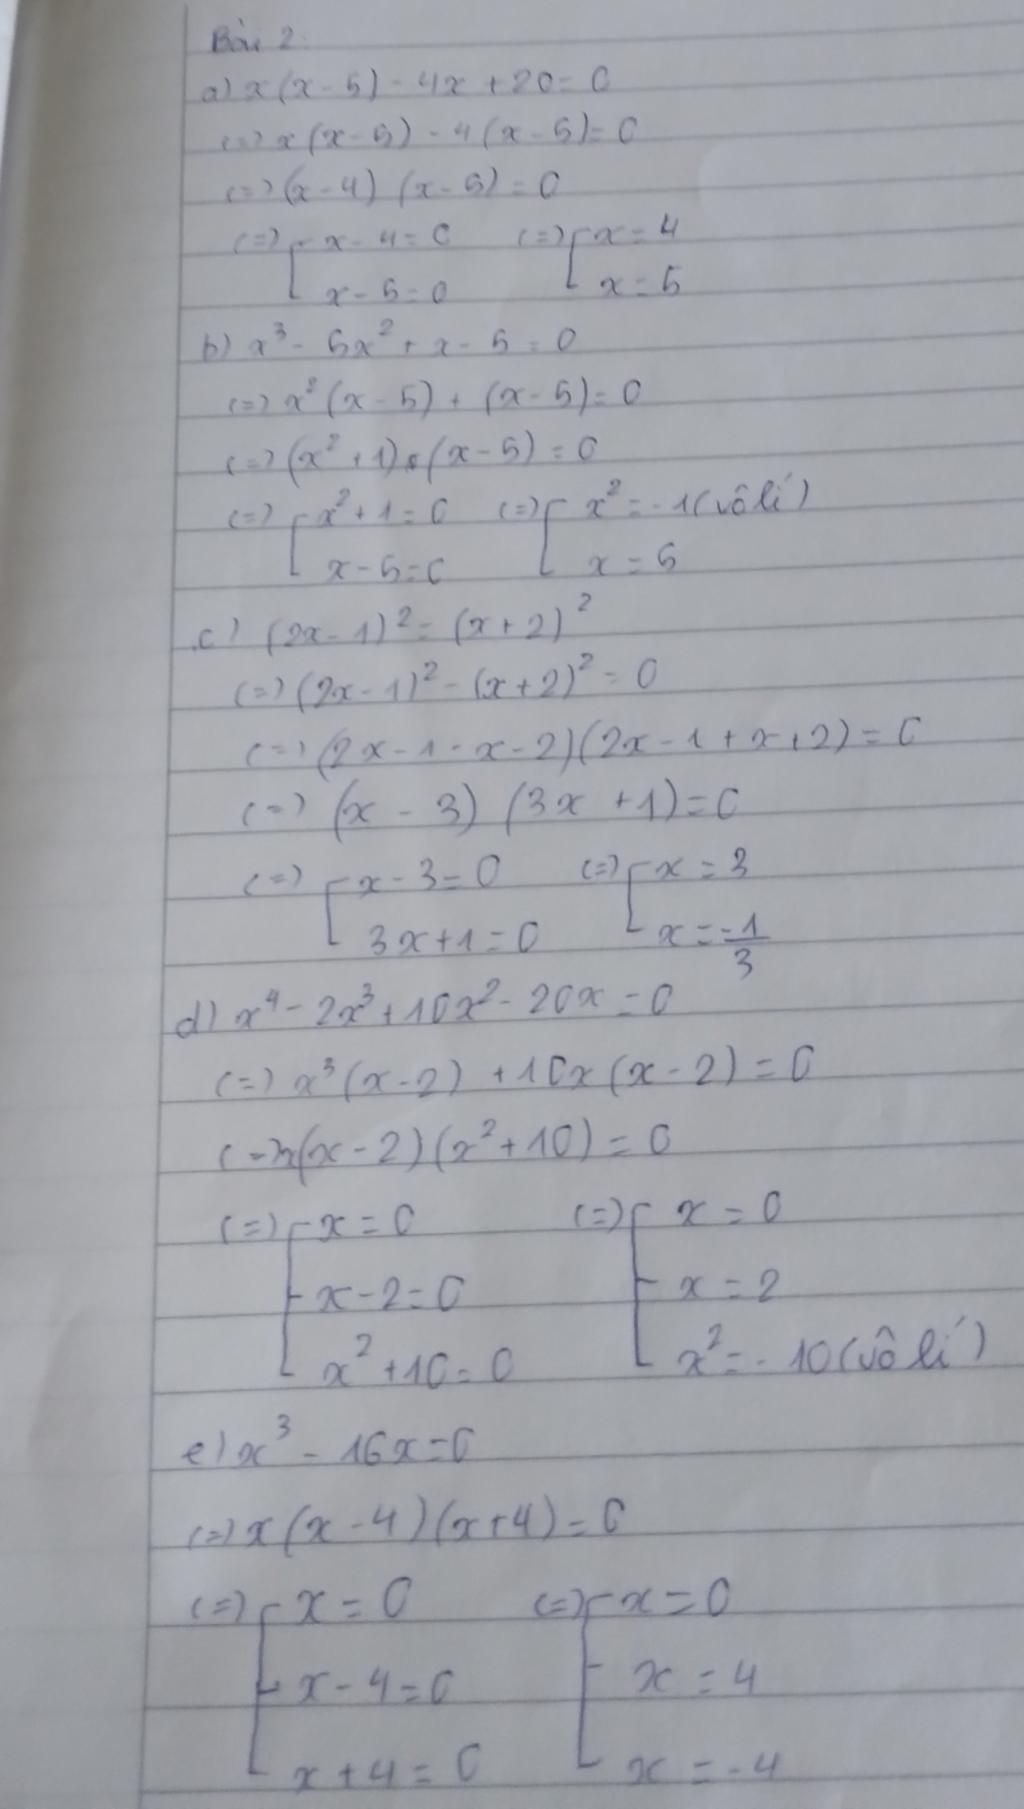 Bài 2.
a) x(x-5) - 4x + 20 = 0
(=) x(x-5) - 4(x-5) = 0
(=) (x-4) (x-5) = 0
(=) [ x-4=0 (=) [ x=4
x-5=0 x=5
b) x³ - 5x² + x - 5 = 0
(=) x²(x-5) + (x-5) = 0
(=) (x²+1).(x-5) = 0
(=) [ x²+1=0 (=) [ x²=-1(vô lí)
x-5=0 x=5
c) (2x-1)² = (x+2)²
(=) (2x-1)² - (x+2)² = 0
(=) (2x-1-x-2)(2x-1+x+2) = 0
(=) (x-3) (3x+1) = 0
(=) [ x-3=0 (=) [ x=3
3x+1=0 x=-1/3
d) x⁴ - 2x³ + 10x² - 20x = 0
(=) x³(x-2) + 10x(x-2) = 0
(=) x(x-2)(x²+10) = 0
(=) [ x=0 (=) [ x=0
x-2=0 x=2
x²+10=0 x²=-10(vô lí)
e) x³ - 16x = 0
(=) x(x-4)(x+4) = 0
(=) [ x=0 (=) [ x=0
x-4=0 x=4
x+4=0 x=-4